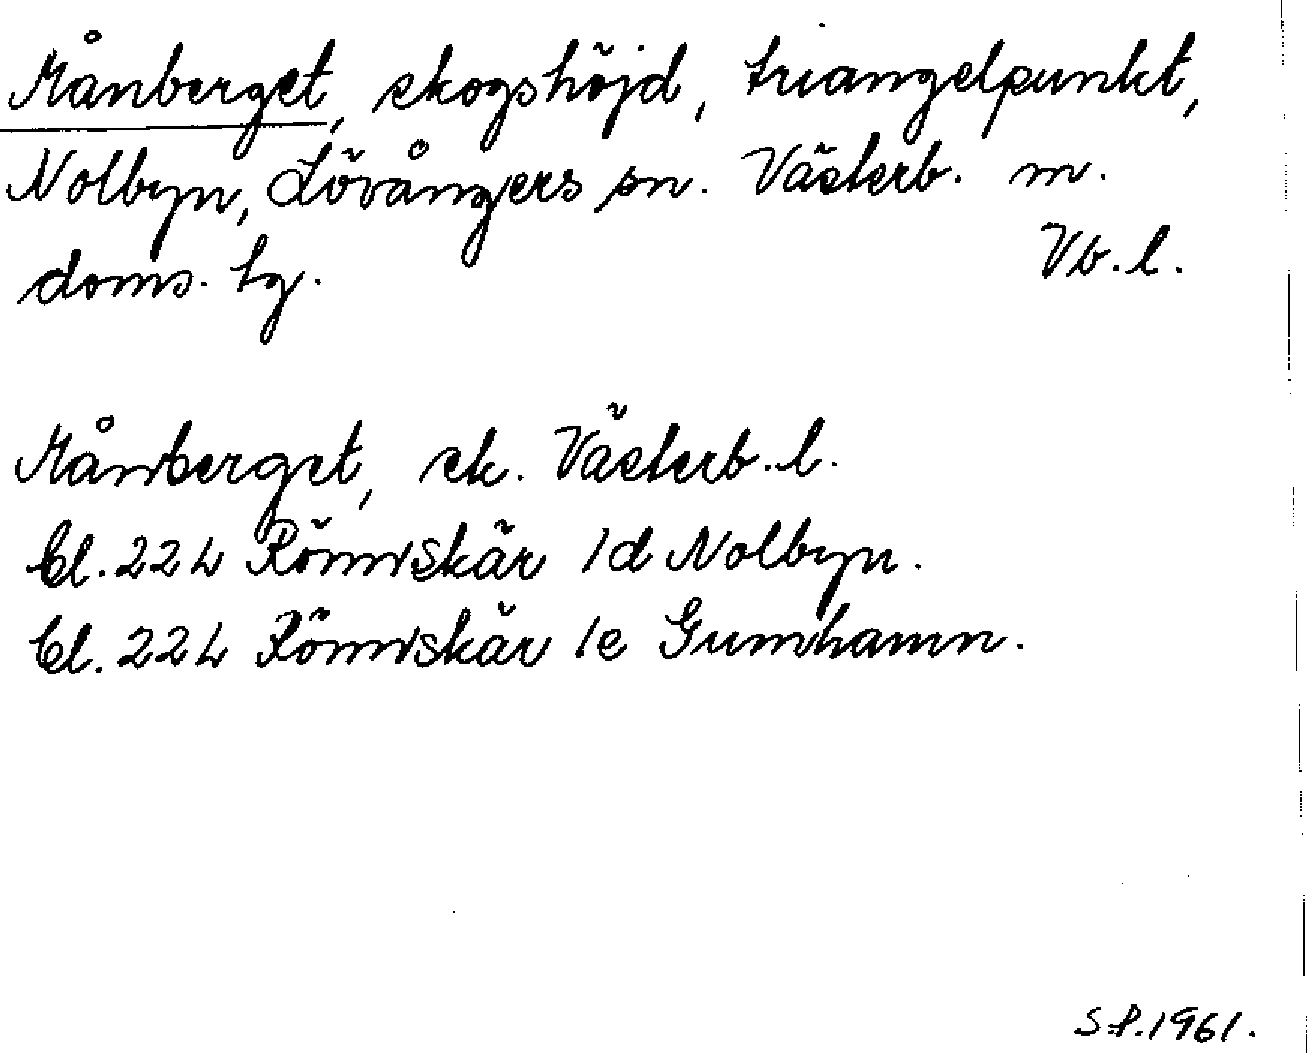 Månberget, skogshöjd, triangelpunkt,
Nolbyn, Lövångers sn. Västerb. m.
doms. tg. Vb. l.
Månberget, sk. Västerb. l.
Cl. 22 L Rönnskär 1d Nolbyn.
Cl. 22 L Rönnskär 1e Gumhamn.
S.P. 1961.